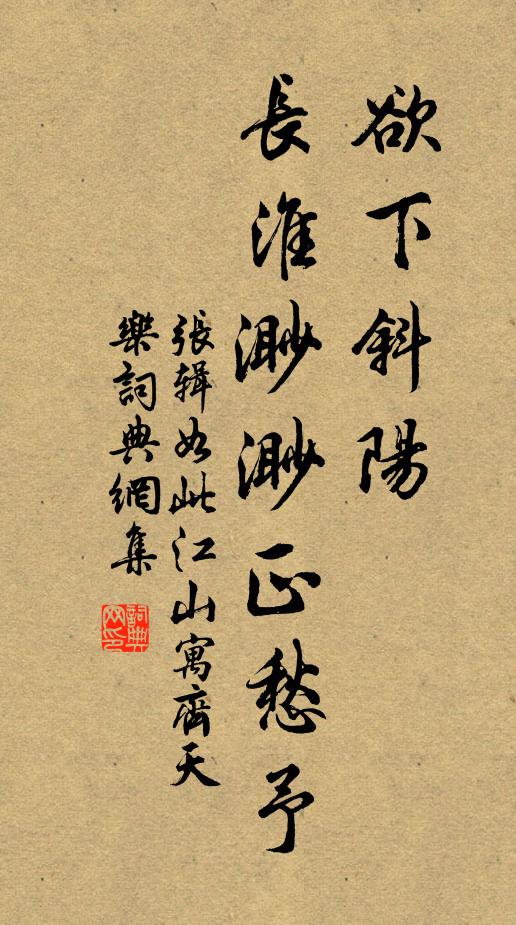 欲下斜陽
長淮渺渺正愁予
張輯如此江山寓齊天
樂詞典網集
詞典網印